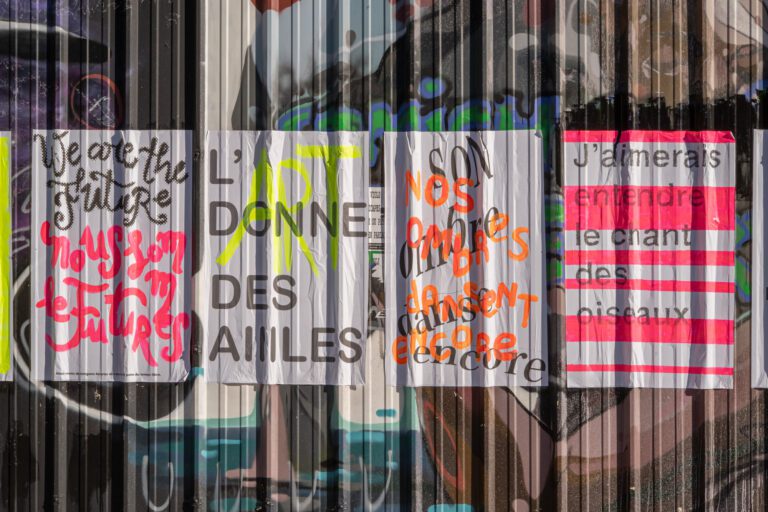 We are the
Future
nous som
m
le futures
L'ART
DONNE
DES
AIIILES
SON
ombre
danse
encore
NOS
OMBRES
dansent
ENCORE
J'aimerais
entendre
le chant
des
oiseaux